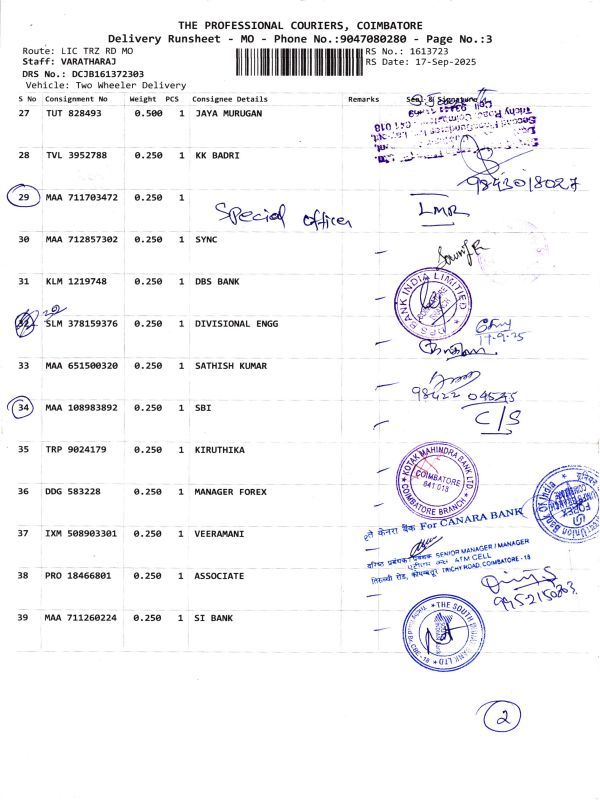 THE PROFESSIONAL COURIERS, COIMBATORE
Delivery Runsheet - MO - Phone No.:9047080280 - Page No.:3
Route: LIC TRZ RD MO
RS No.: 1613723
Staff: VARATHARAJ
RS Date: 17-Sep-2025
DRS No.: DCJB161372303
Vehicle: Two Wheeler Delivery
S No Consignment No Weight PCS Consignee Details Remarks Seal & Signature
27 TUT 828493 0.500 1 JAYA MURUGAN
28 TVL 3952788 0.250 1 KK BADRI
9843018027
29 MAA 711703472 0.250 1
Special officer LMR
30 MAA 712857302 0.250 1 SYNC
31 KLM 1219748 0.250 1 DBS BANK
DBS BANK INDIA LIMITED
32 SLM 378159376 0.250 1 DIVISIONAL ENGG
17-9-25
33 MAA 651500320 0.250 1 SATHISH KUMAR
98422 04545
34 MAA 108983892 0.250 1 SBI
C/S
35 TRP 9024179 0.250 1 KIRUTHIKA
KOTAK MAHINDRA BANK LTD
COIMBATORE
641 018
COIMBATORE BRANCH
36 DDG 583228 0.250 1 MANAGER FOREX
FOREX
Union Bank Of India
37 IXM 508903301 0.250 1 VEERAMANI
कृते केनरा बैंक For CANARA BANK
वरिष्ठ प्रबंधक / प्रबंधक SENIOR MANAGER / MANAGER
ATM CELL
TRICHY ROAD, COIMBATORE - 18
38 PRO 18466801 0.250 1 ASSOCIATE
9952150263
39 MAA 711260224 0.250 1 SI BANK
THE SOUTH INDIAN BANK LTD
2